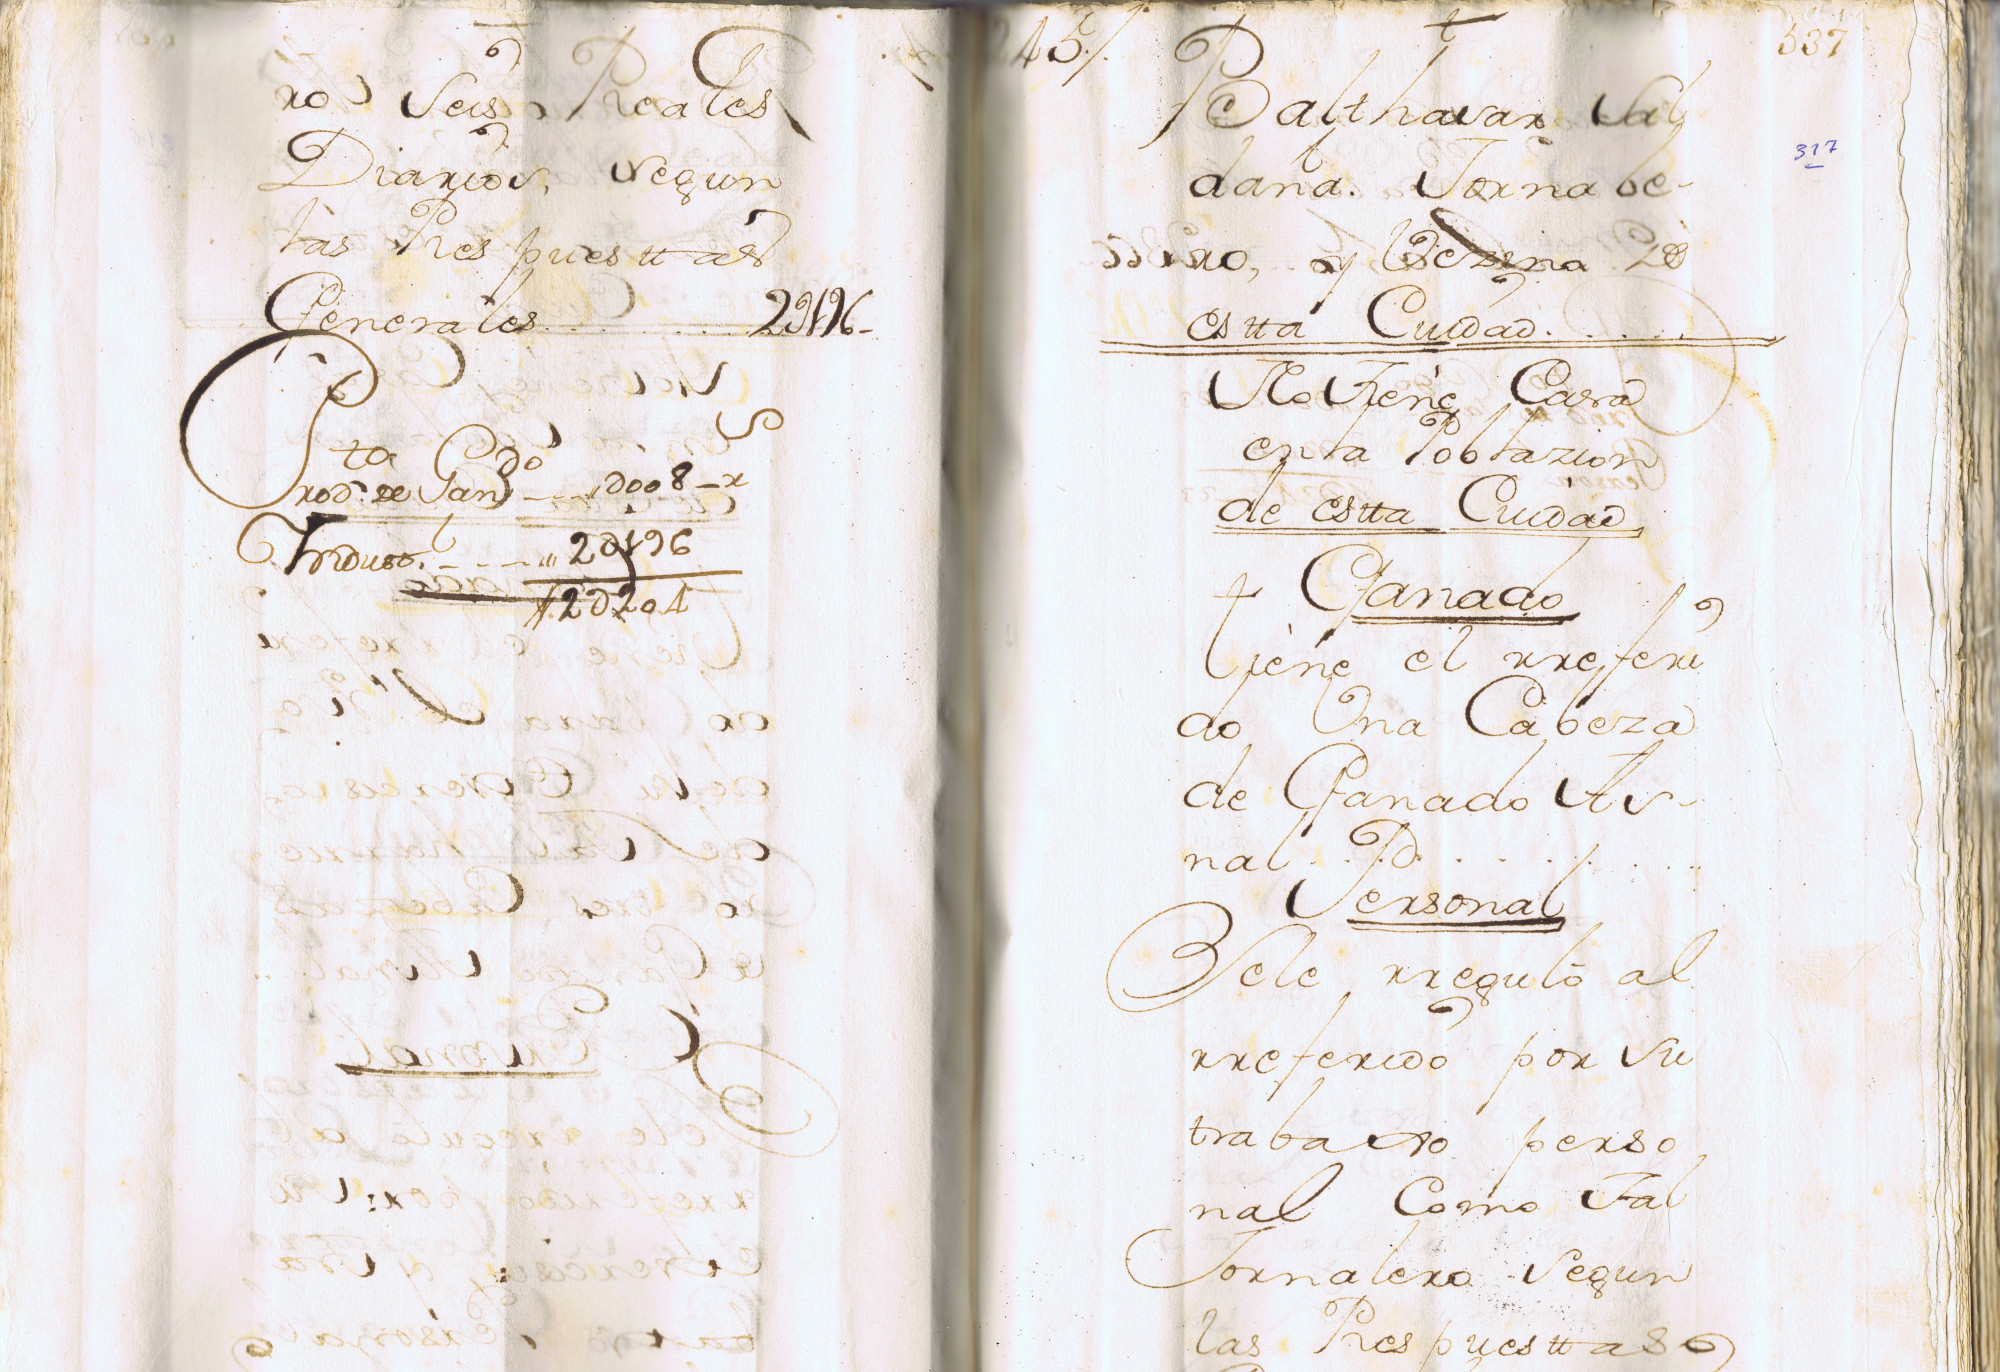 ro Seis Reales
Diarios, segun
las Respuesttas
Generales . . . . . . . 2ϑ196-
Sta Cdo
Prod.º de Gan.º - - - ,,ϑ008-r
Yndusº. - - - - ,,, 2ϑ196
2ϑ204
245/.
537
317
Balthasar Sal
dana. Jornale-
ro, y Bezino de
estta Ciudad. . . . . .
No tiene Casa
en la Poblazion
de estta Ciudad
Ganado
tiene el rreferi
do Una Cabeza
de Ganado As-
nal . . Pd. . . . . . .
Personal
Sele rregulò al
rreferido por su
trabaxo perso
nal Como Tal
Jornalero segun
las Respuesttas